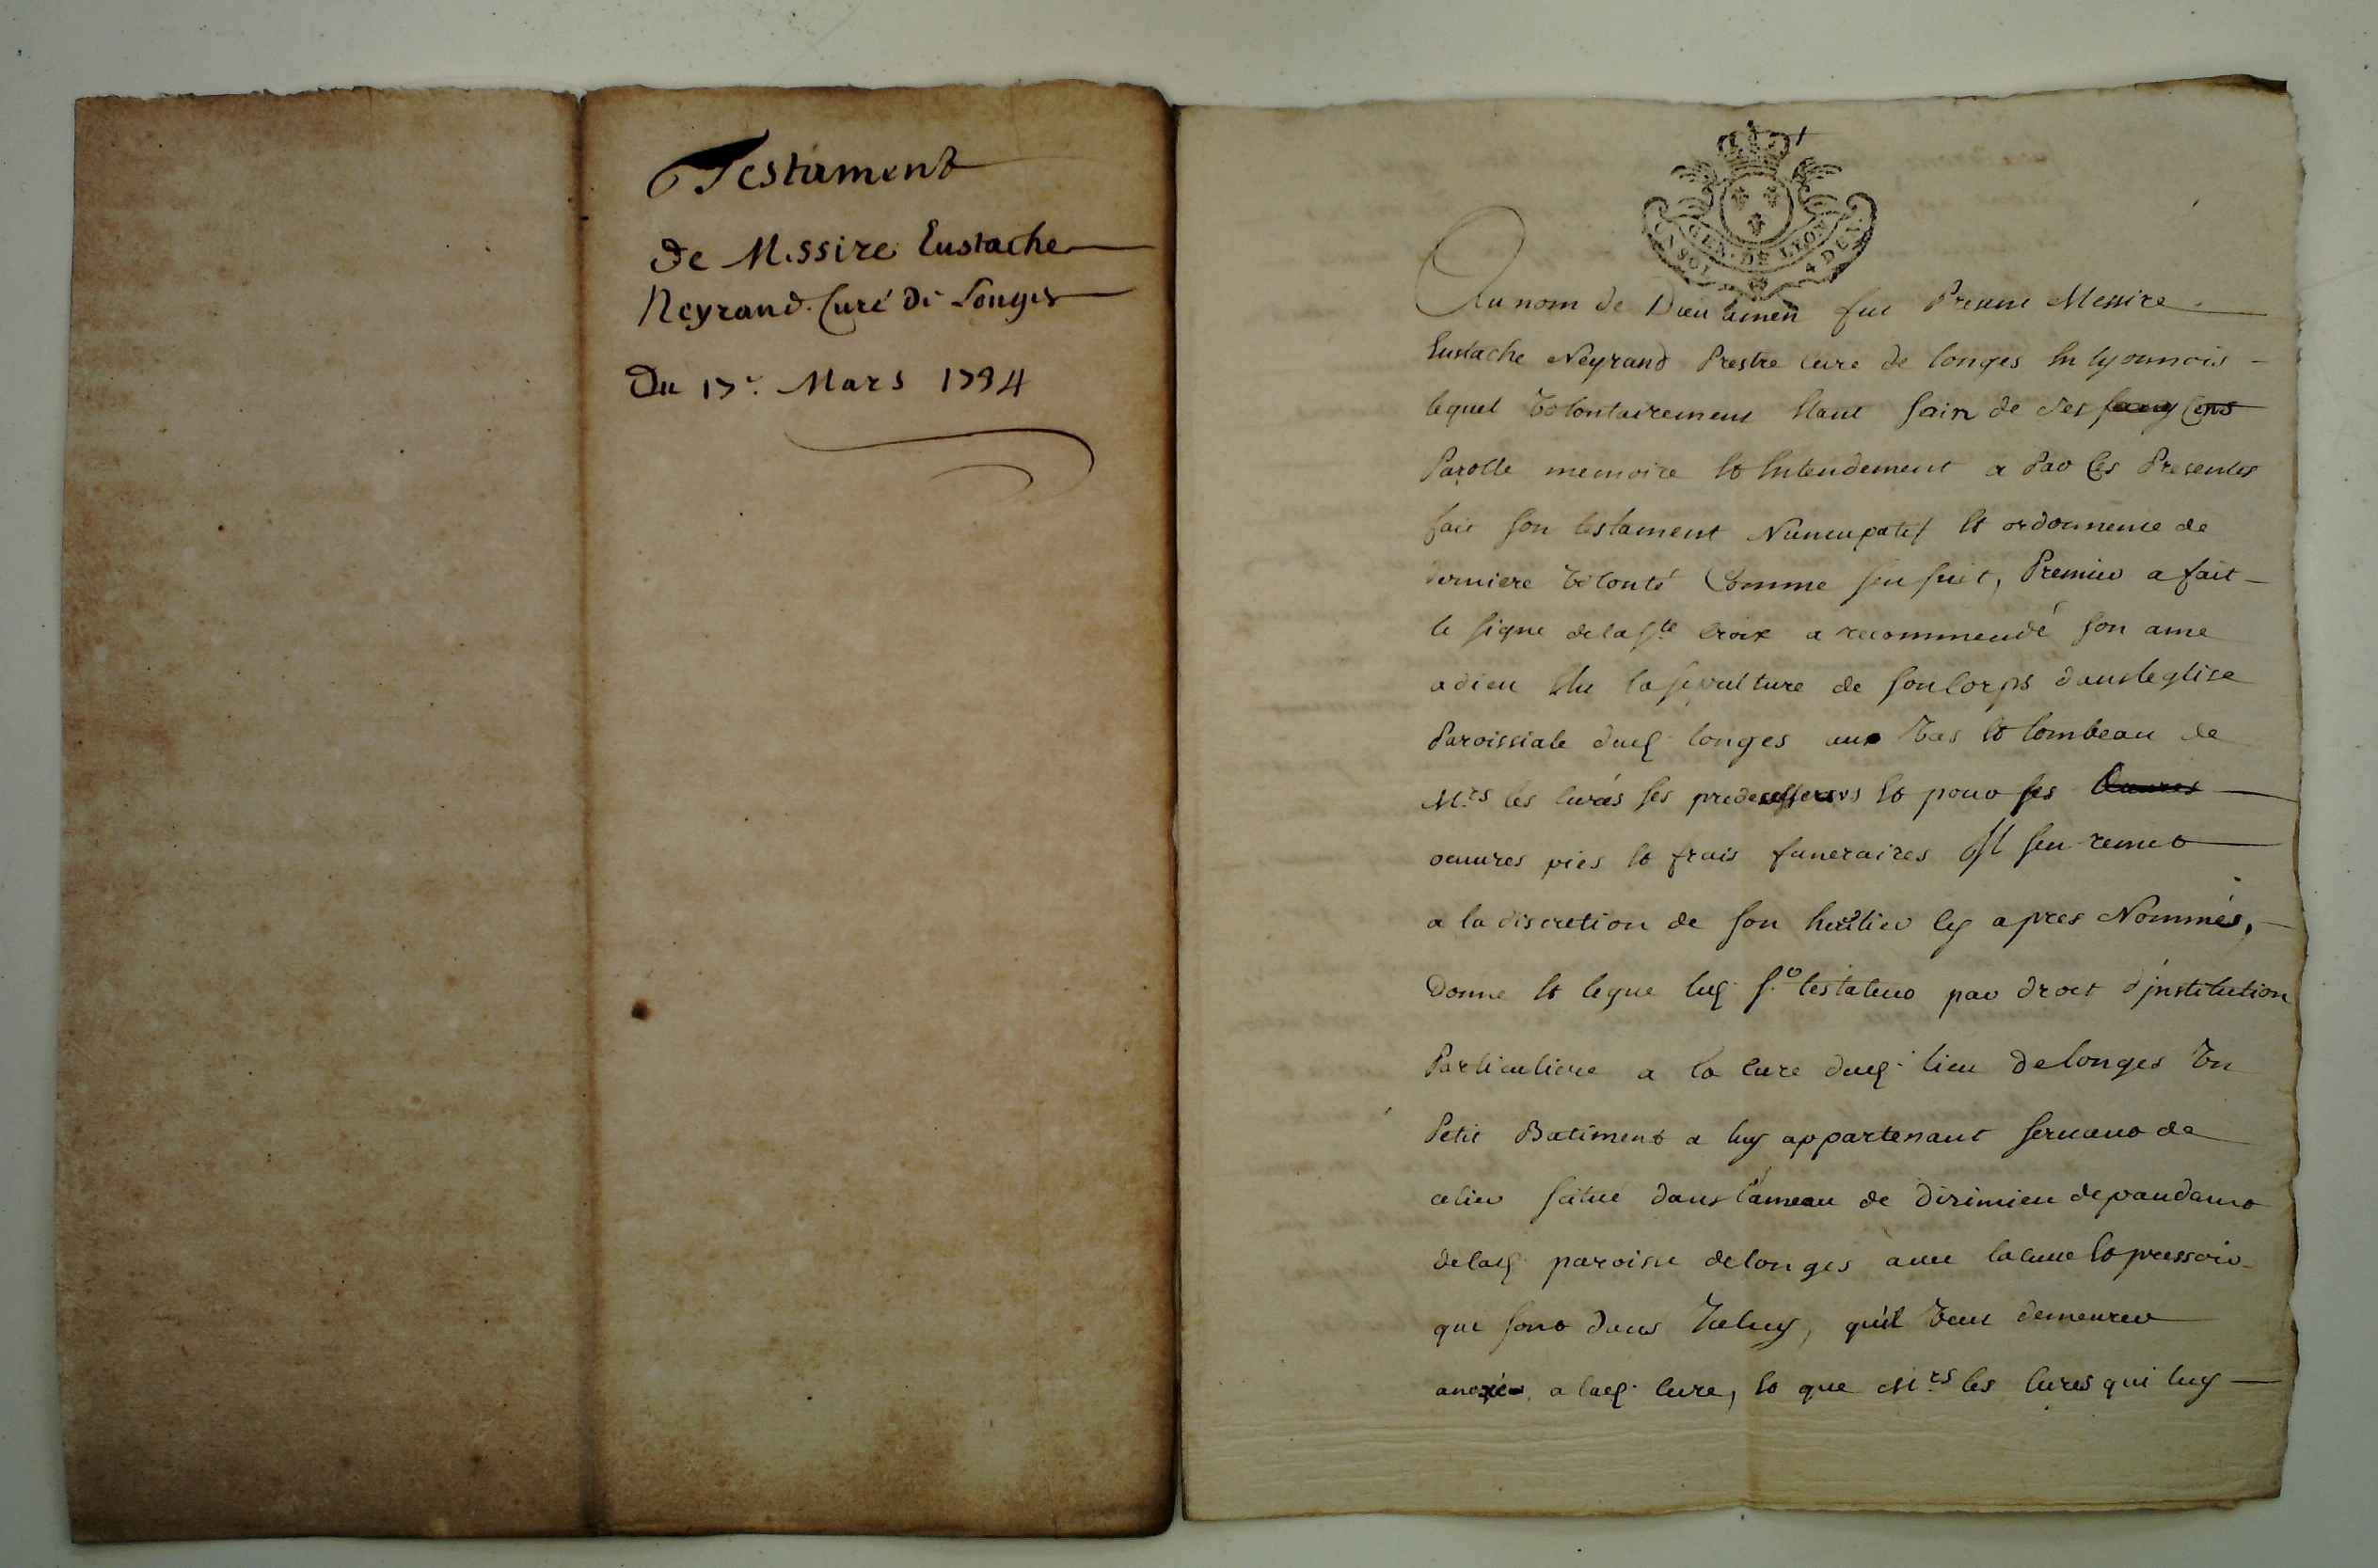 Testament
De Messire Eustache
Neyrand. Curé de Longes
Du 17e. Mars 1734
GEN. DE LYON
UN SOL 4 DEN.
Au nom de Dieu amen fut Present Messire
Eustache Neyrand Prestre Curé de longes En lyonnois
lequel Volontairement Etant sain de ses sens
Parolle memoire Et Entendement a Par Ces Presentes
fait son testament Nuncupatif Et ordonnence de
derniere Volonté Comme sensuit, Premier a fait
le signe de la Ste Croix a recommendé son ame
a dieu Elu la sepulture de son Corps dans leglise
Paroissiale dud. longes aux Vas Et tombeau de
Mrs les Curés ses predecesseurs Et pour ses Oeuvres
oeuures pies Et frais funeraires Il sen remet
a la discretion de son heritier Cy apres Nommés,
Donne Et legue led. Sr. testateur par droit d'institution
Particuliere a la Cure dud. lieu de longes Un
Petit Batiment a luy appartenant servant de
celier situé dans l'ameau de Dizimieu dependant
de lad. paroisse de longes avec la cuve Et pressoir
qui sont dans Iceluy, qu'il Veut demeurer
anexés a lad. Cure, Et que Mrs les Curés qui luy